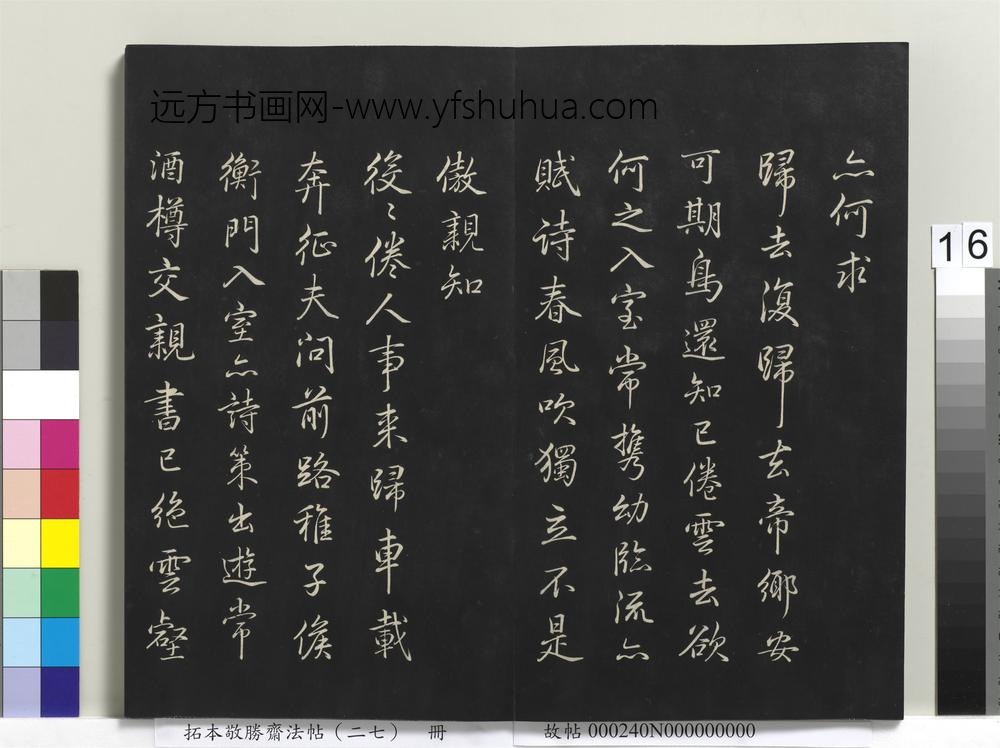 远方书画网-www.yfshuhua.com
亦何求
歸去復歸去帝鄉安
可期鳥還知已倦雲去欲
何之入室常攜幼臨流亦
賦诗春風吹獨立不是
傲親知
役〻倦人事来歸車載
奔征夫问前路稚子候
衡門入室亦詩策出遊常
酒樽交親書已絕雲壑
16
拓本敬勝齋法帖（二七） 冊
故帖 000240N000000000